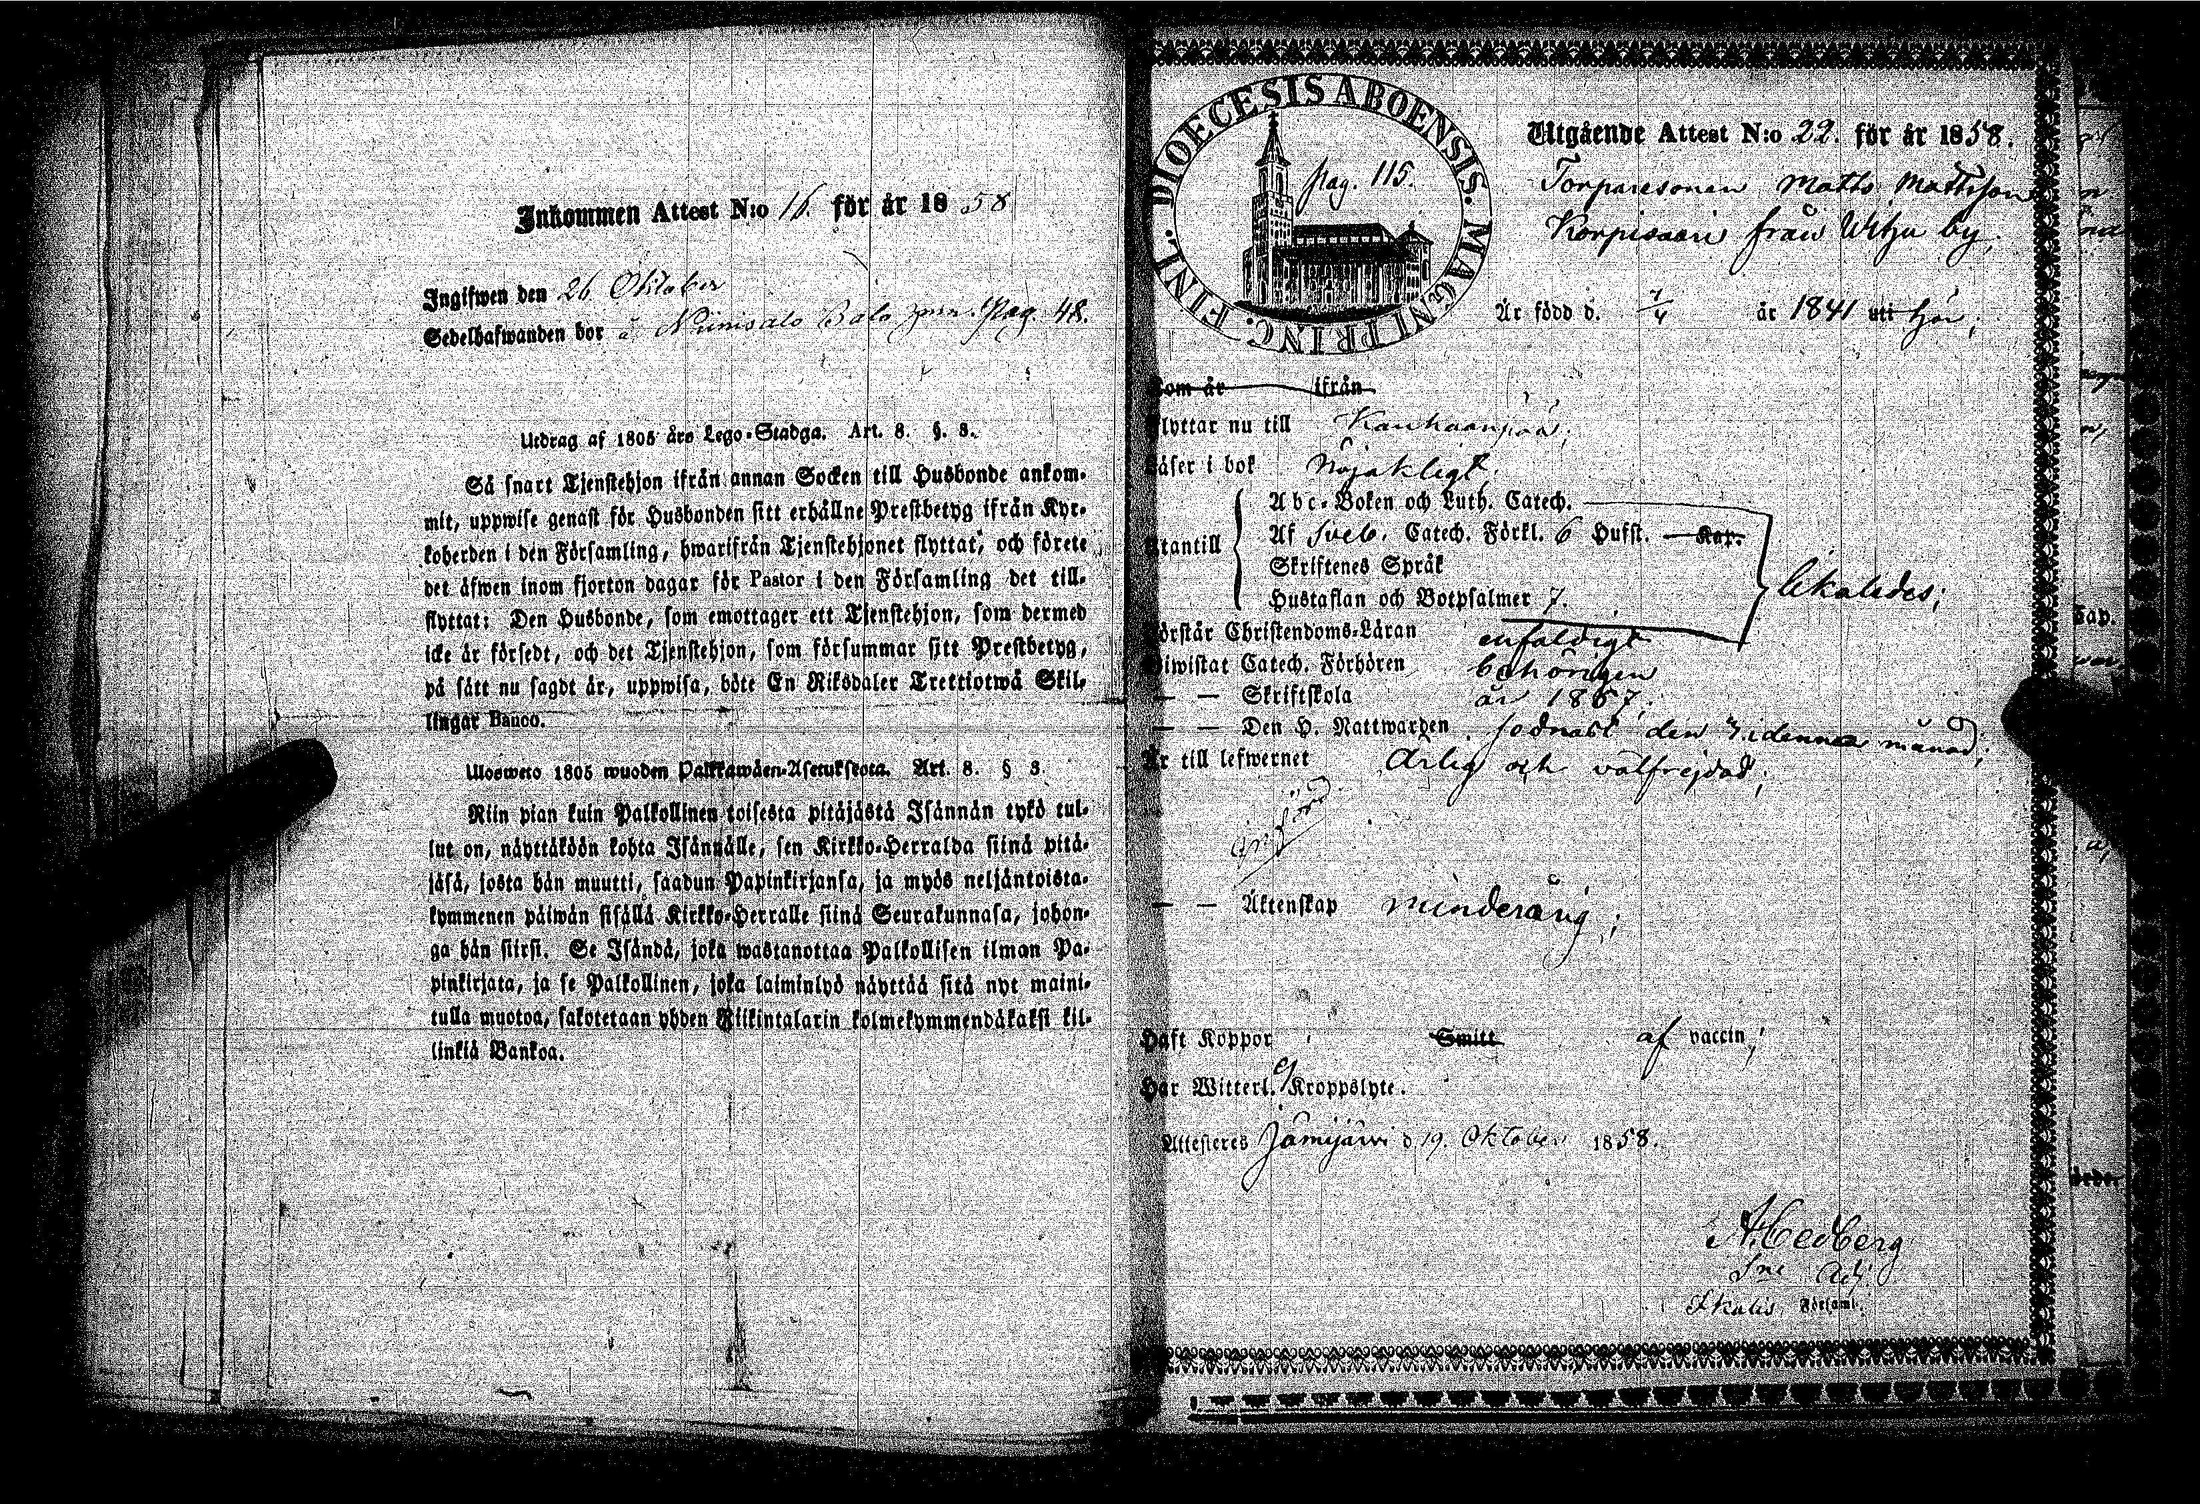 Inkommen Attest N:o 16. för år 1858
Ingifwen den 26 Oktober
Sedelhafwanden bor å Niinisalo Pag. 48.
Utdrag af 1805 års Lego-Stadga. Art. 8. §. 3.
Så snart Tjenstehjon ifrån annan Socken till Husbonde ankom-
mit, uppwise genast för Husbonden sitt erhållne Prestbetyg ifrån Kyr-
koherden i den Församling, hwarifrån Tjenstehjonet flyttat, och förete
det äfwen inom fjorton dagar för Pastor i den Församling det till-
flyttat: Den Husbonde, som emottager ett Tjenstehjon, som dermed
icke är försedt, och det Tjenstehjon, som försummar sitt Prestbetyg,
på sätt nu sagdt är, uppwisa, böte En Riksdaler Trettiotwå Skil-
lingar Banco.
Ulosweto 1805 wuoden Palkkawäen-Asetuksesta. Art. 8. § 3.
Niin pian kuin Palkollinen toisesta pitäjästä Isännän tykö tul-
lut on, näyttäköön kohta Isännälle, sen Kirkko-Herralda siinä pitä-
jäsä, josta hän muutti, saadun Papinkirjansa, ja myös neljäntoista-
kymmenen päiwän sisällä Kirkko-Herralle siinä Seurakunnasa, johon-
ga hän siirsi. Se Isändä, joka wastanottaa Palkollisen ilman Pa-
pinkirjata, ja se Palkollinen, joka laiminlyö näyttää sitä nyt maini-
tulla muotoa, sakotetaan yhden Riikintalarin kolmekymmendäkaksi kil-
linkiä Bankoa.
DIOECESIS ABOENSIS. MAGNI PRINC. FINL.
Pag. 115.
Utgående Attest N:o 22. för år 1858.
Torparesonen Matts Mattsson
Korpisaari från Wihu by,
Är född d. 7/4 år 1841 utt här;
Som är ifrån
Flyttar nu till Kankaanpää;
Läser i bok Nöjakligt,
Abc-Boken och Luth. Catech.
Utantill Af Sveb. Catech. Förkl. 6 Hufst. Kap.
Skriftenes Språk
Hustaflan och Botpsalmer 7.
likaledes;
Förstår Christendoms-Läran enfaldigt
Biwistat Catech. Förhören behörigen
— — Skriftskola år 1857,
— — Den H. Nattwarden sednast den 3 i denna månad;
Är till lefwernet Ärlig och välfrejdad;
— — Äktenskap minderårig;
Haft Koppor Smitt af vaccin;
Har Witterl. ej Kroppslyte.
Attesteres Jämijärvi d. 19. Oktober 1858.
A. Cedberg
Sne Adj
Ikalis Församl.